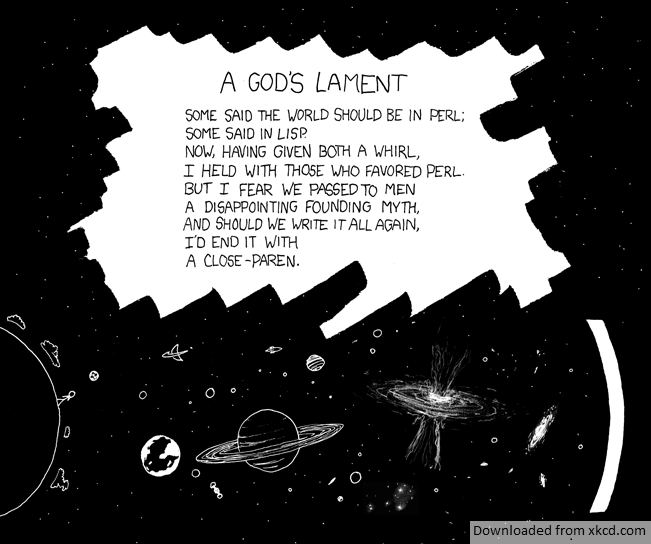 A GOD'S LAMENT
SOME SAID THE WORLD SHOULD BE IN PERL;
SOME SAID IN LISP.
NOW, HAVING GIVEN BOTH A WHIRL,
I HELD WITH THOSE WHO FAVORED PERL.
BUT I FEAR WE PASSED TO MEN
A DISAPPOINTING FOUNDING MYTH,
AND SHOULD WE WRITE IT ALL AGAIN,
I'D END IT WITH
A CLOSE-PAREN.
Downloaded from xkcd.com